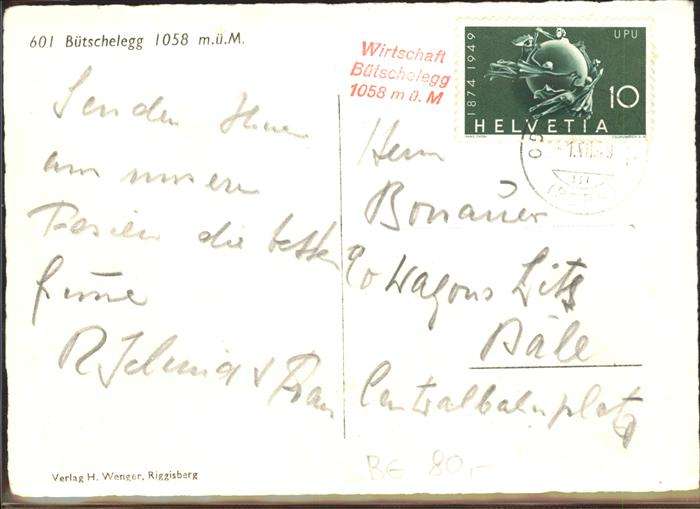 601 Bütschelegg 1058 m.ü.M.
Wirtschaft
Bütschelegg
1058 m ü. M
1874 1949
UPU
10
HELVETIA
Senden Ihnen
aus unseren
Ferien die besten
Grüsse
R. Schmid + Frau
Herrn
Bonauer
c/o Wagons Lits
Bâle
Centralbahnplatz
BE 80.-
Verlag H. Wenger, Riggisberg